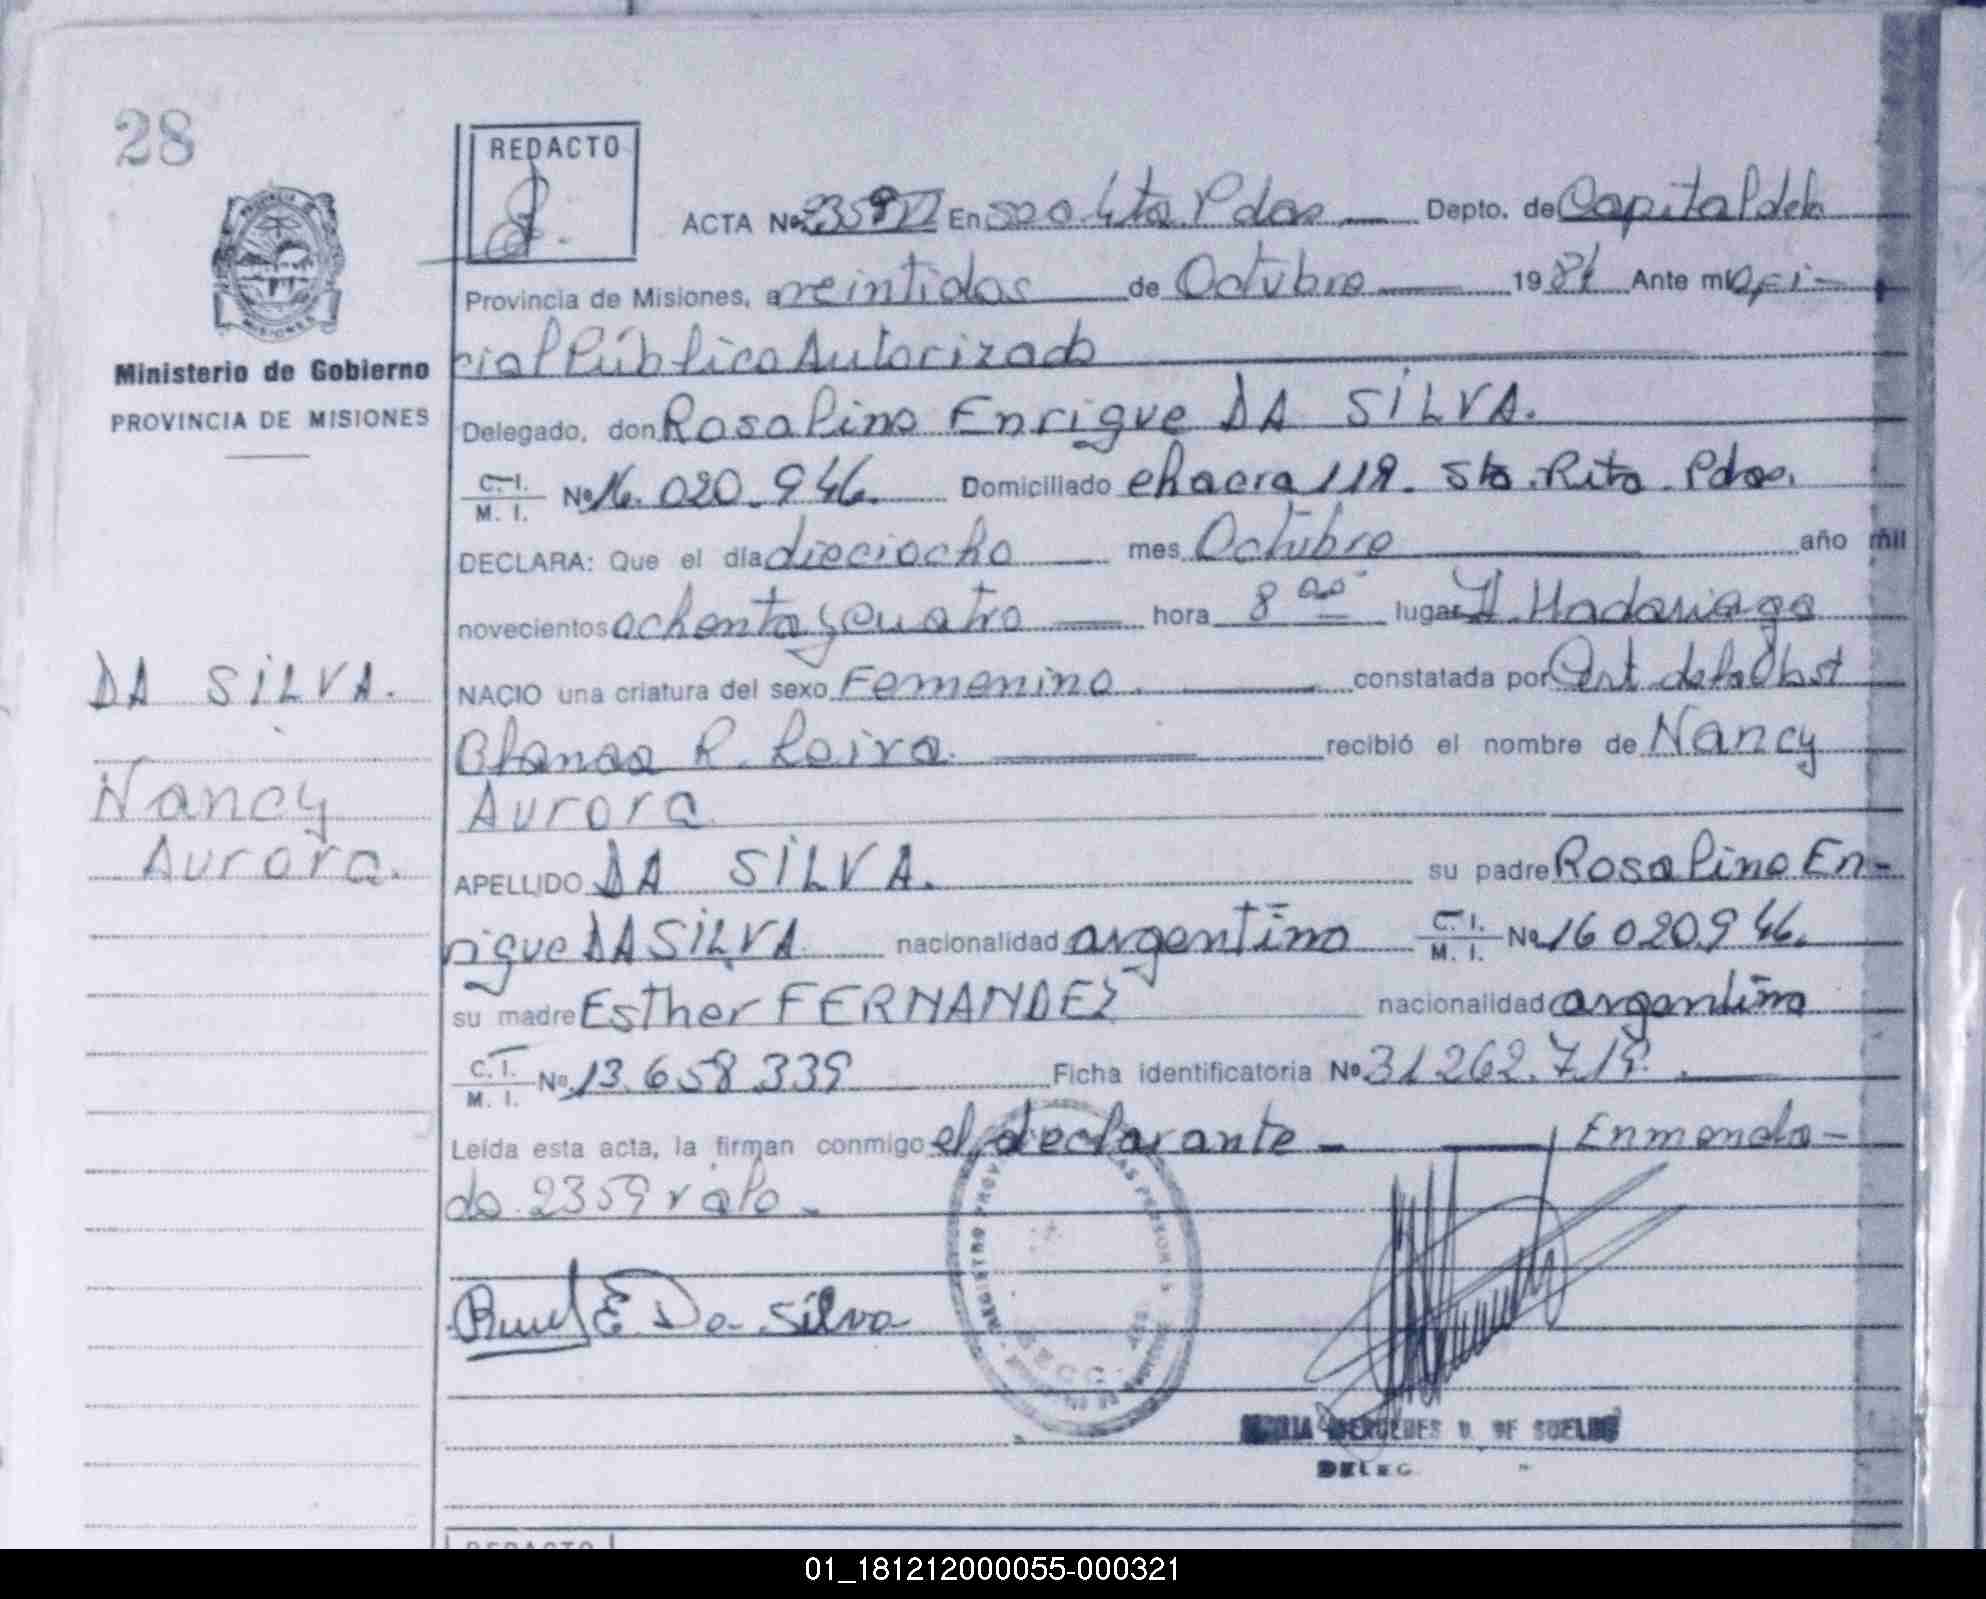 28
REDACTO
ACTA Nº 2359 En Depto. de Capital de la
Provincia de Misiones, a veintidos de Octubre 1984 Ante mi Ofi-
cial Público Autorizado
Ministerio de Gobierno
PROVINCIA DE MISIONES
Delegado, don Rosalino Enrique DA SILVA.
C. I. / M. I. Nº 16.020.946. Domiciliado chacra 119. Sta. Rita. Pdas.
DECLARA: Que el día dieciocho mes Octubre año mil
novecientos ochenta y cuatro hora 8 00 lugar H. Madariaga
NACIO una criatura del sexo Femenino constatada por Cert de la Obst
Blanca R. Leiva. recibió el nombre de Nancy
Aurora
APELLIDO DA SILVA. su padre Rosalino En-
rique DA SILVA nacionalidad argentino C. I. / M. I. Nº 16 020 946.
su madre Esther FERNANDEZ nacionalidad argentina
C. I. / M. I. Nº 13.658.339 Ficha identificatoria Nº 31.262.719.
Leída esta acta, la firman conmigo el declarante Enmenda-
do 2359 vale.
DA SILVA.
Nancy
Aurora.
E Da Silva
MARIA MERCEDES DE
DELEG
REDACTO
01_181212000055-000321